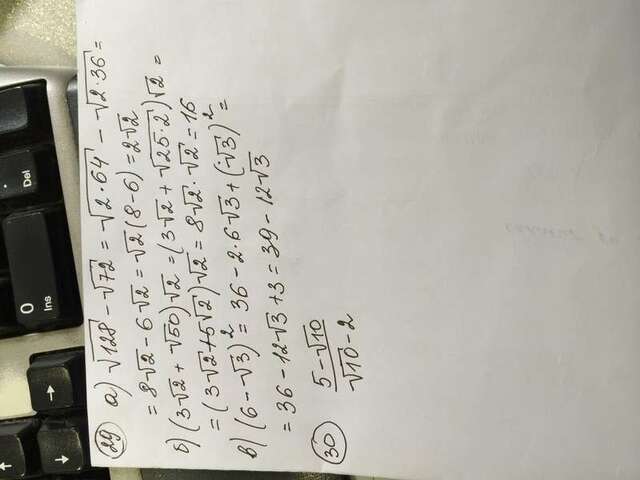 29 а) √128 - √72 = √2·64 - √2·36 =
= 8√2 - 6√2 = √2(8-6) = 2√2
б) (3√2 + √50)√2 = (3√2 + √25·2)√2 =
= (3√2+5√2)√2 = 8√2·√2 = 16
в) (6-√3)² = 36 - 2·6√3 + (√3)² =
= 36 - 12√3 + 3 = 39 - 12√3
30 5-√10
√10-2
Del
.
0
Ins
→
↑
↓